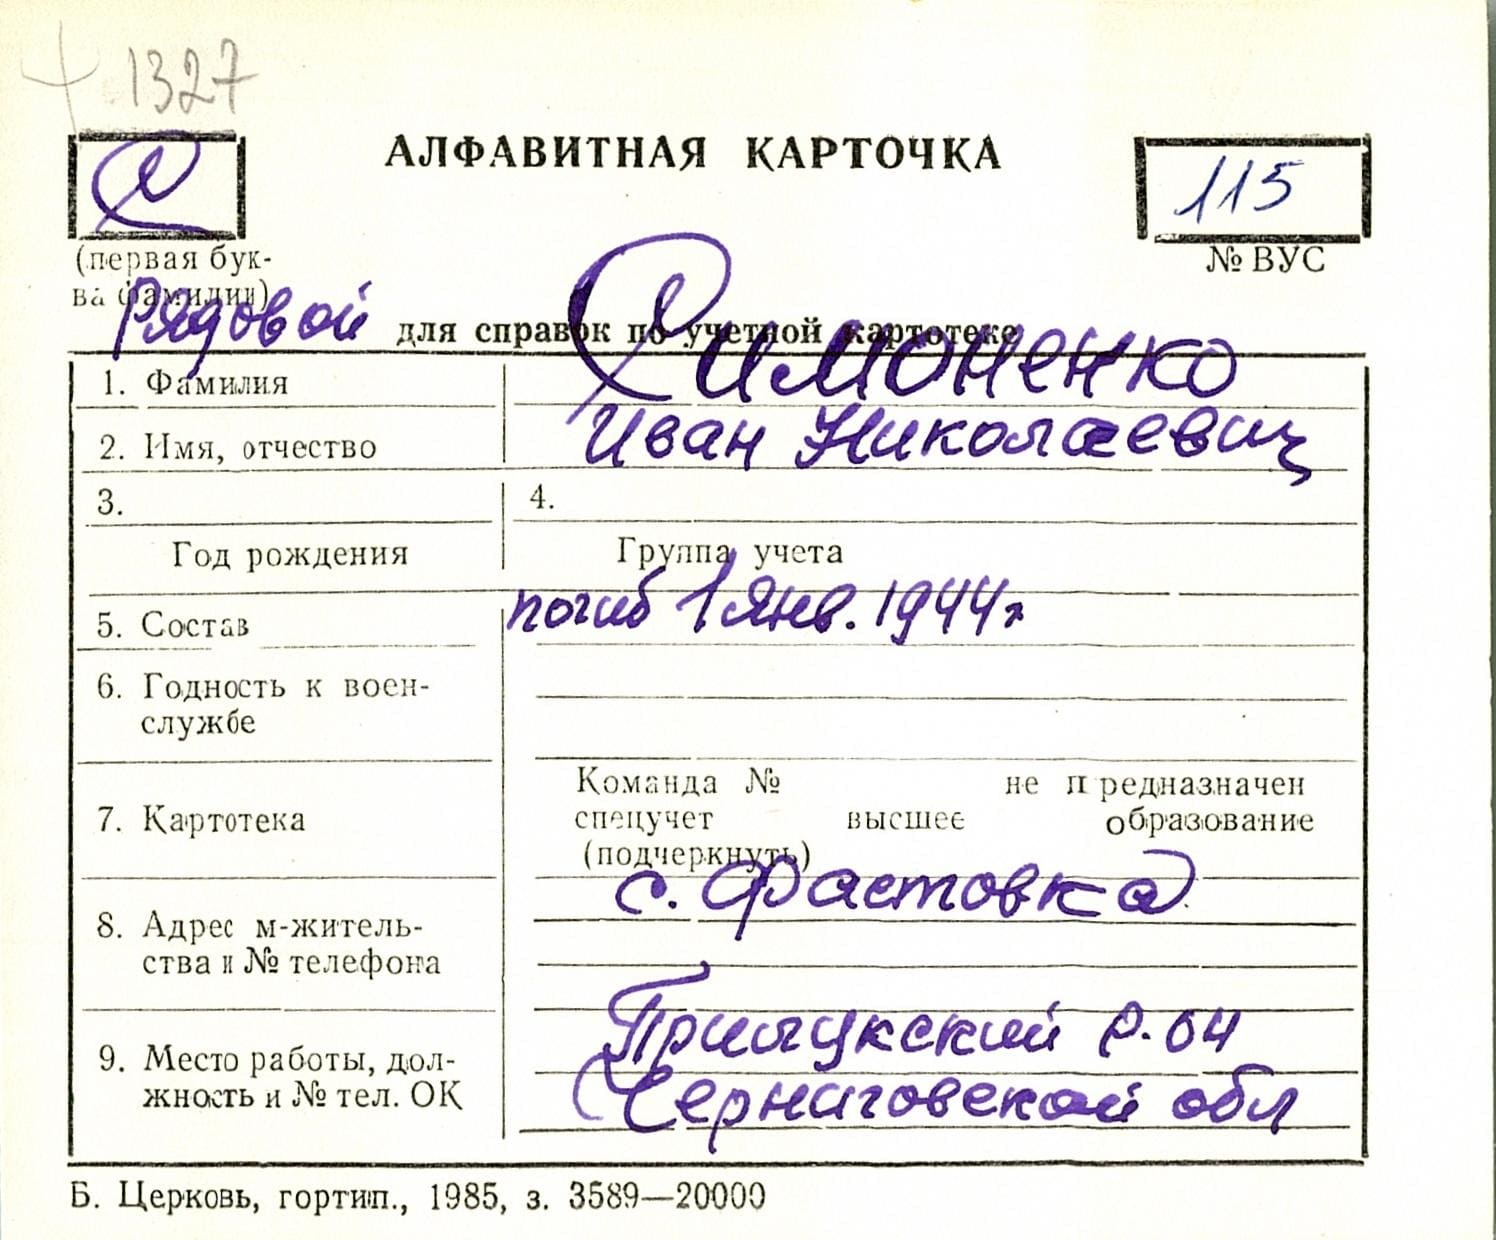 1327
С
АЛФАВИТНАЯ КАРТОЧКА
115
(первая бук-
ва фамилии)
№ ВУС
Рядовой
для справок по учетной картотеке
1. Фамилия Симоненко
2. Имя, отчество Иван Николаевич
3. 4.
Год рождения Группа учета
5. Состав погиб 1 янв. 1944 г
6. Годность к воен-
службе
Команда № не предназначен
7. Картотека спецучет высшее образование
(подчеркнуть)
с. Фастовка
8. Адрес м-житель-
ства и № телефона
Прилукский р-он
9. Место работы, дол-
жность и № тел. ОК Черниговской обл
Б. Церковь, гортип., 1985, з. 3589—20000